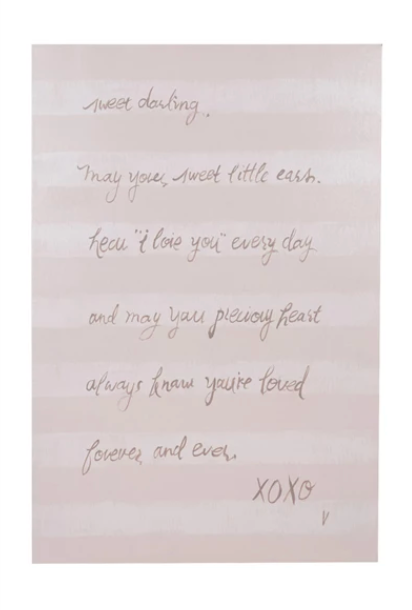 sweet darling.
may your sweet little ears.
hear "i love you" every day
and may your precious heart
always know you're loved
forever and ever.
XOXO
V